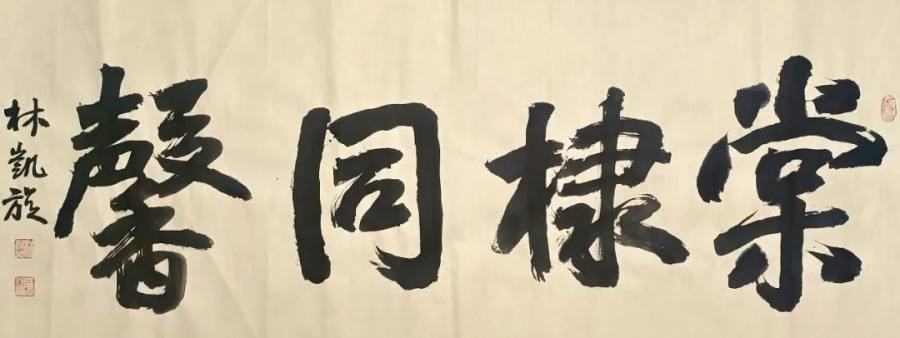 棠棣同馨
林凯旋